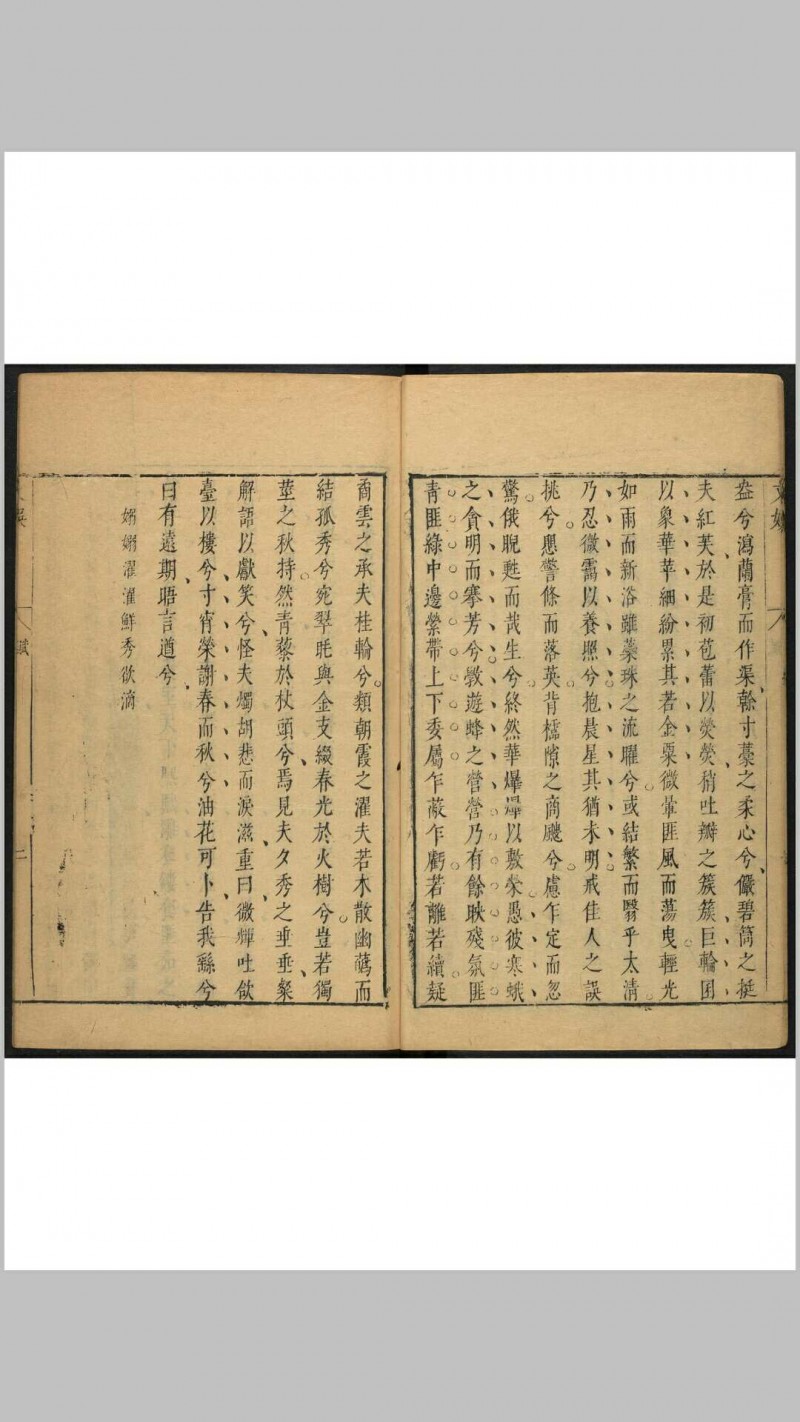 盎兮瀉蘭膏而作渠榦寸藁之柔心兮儼碧筒之挺
夫紅芙於是初苞蕾以熒熒稍吐瓣之簇簇巨輪囷
以象華苹細紛累其若金粟微暈匪風而蕩曳輕光
如雨而新浴雖蘂珠之流曜兮或結繁而翳乎太清
乃忍微霱以養照兮抱晨星其猶未明戒佳人之誤
挑兮愚警條而落英背櫺隙之商颷兮慮乍定而忽
驚俄睨甦而茂生兮終然華爆爆以敷榮愚彼寒蛾
之貪明而搴芳兮斁遊蜂之營營乃有餘映殘氛匪
青匪綠中邊縈帶上下委屬乍蔽乍虧若離若續疑
矞雲之承夫桂輪兮類朝霞之濯夫若木散幽薦而
結孤秀兮宛翠旄與金支綴春光於火樹兮豈若獨
莖之秋持然青藜於杖頭兮焉見夫夕秀之垂垂粲
解語以獻笑兮怪夫燭胡悲而淚滋重曰微燀吐欲
臺以樓兮寸宵榮謝春而秋兮油花可卜告我繇兮
曰有遠期晤言遒兮
嫋嫋濯濯鮮秀欲滴
賦
二